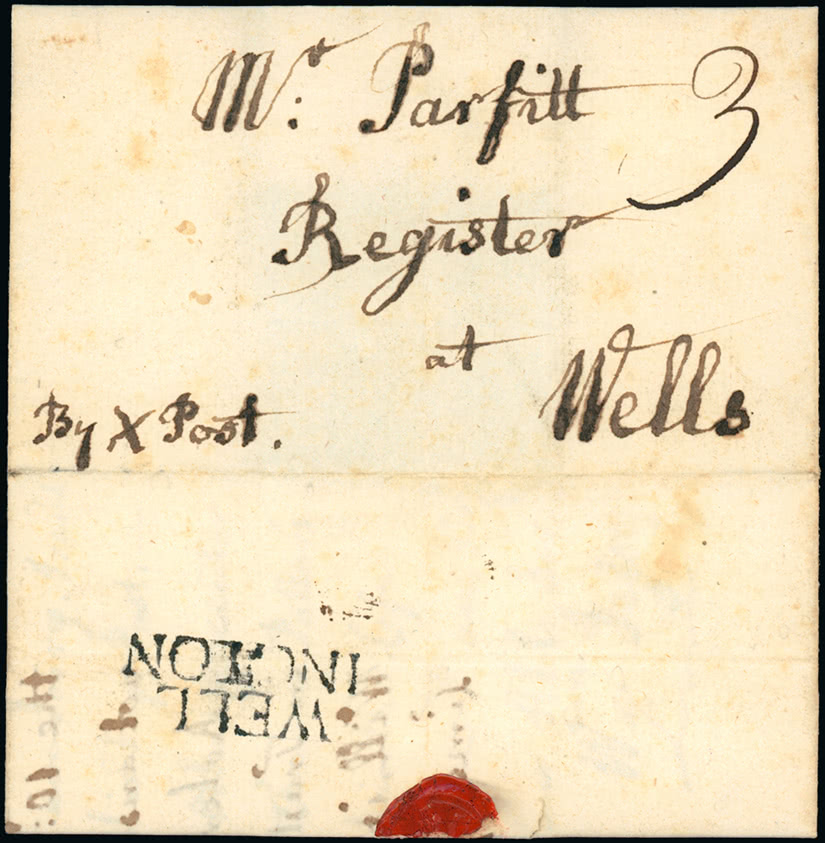 Mr. Parfitt 3
Register
at Wells
By X Post.
WELL
INGTON